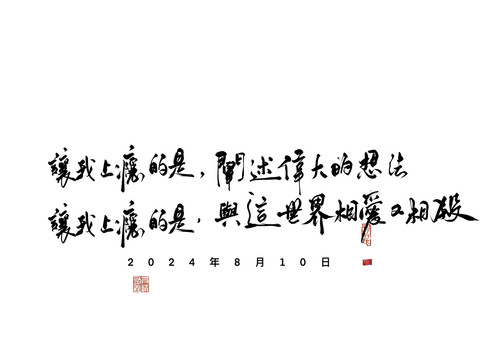 讓我上癮的是，闡述偉大的想法
讓我上癮的是，與這世界相愛又相殺
2024年8月10日